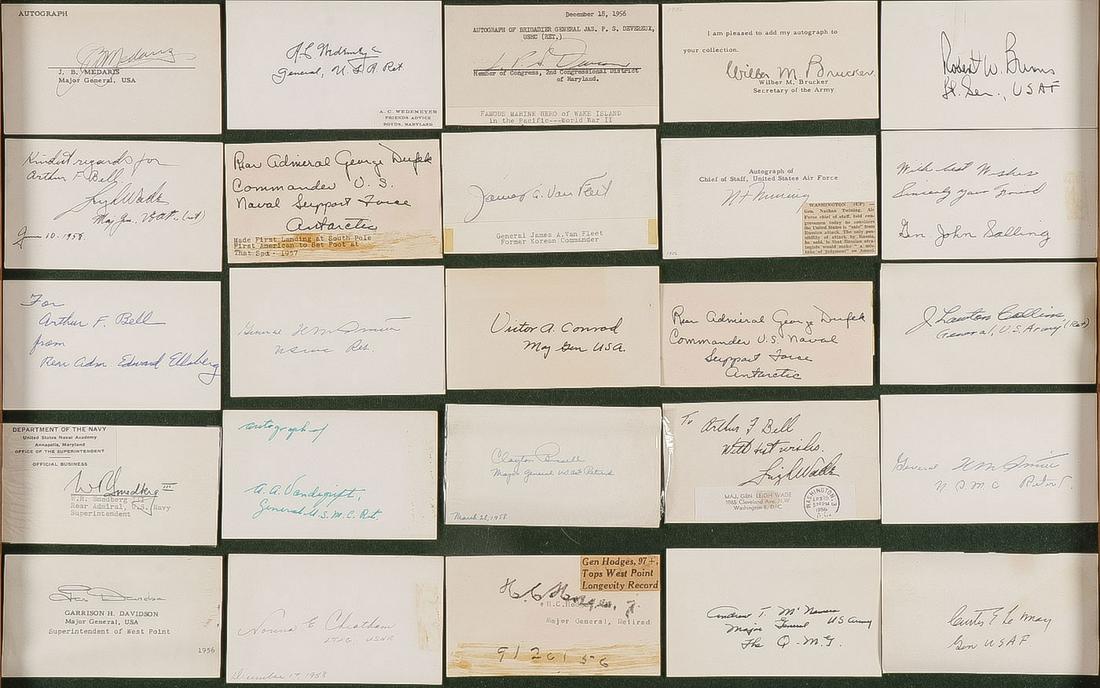 AUTOGRAPH
J. B. Medaris
J. B. MEDARIS
Major General, USA
General, U.S.A Ret.
A. C. WEDEMEYER
FRIENDS ADVICE
BOYDS, MARYLAND
December 18, 1956
AUTOGRAPH OF BRIGADIER GENERAL JAS. P. S. DEVEREUX,
USMC (RET.)
Member of Congress, 2nd Congressional District
of Maryland.
FAMOUS MARINE HERO of WAKE ISLAND
in the Pacific---World War II
I am pleased to add my autograph to
your collection.
Wilber M. Brucker
Wilber M. Brucker
Secretary of the Army
Robert W. Burns
Lt. Gen., USAF
Kindest regards for
Arthur F. Bell
Leigh Wade
Maj Gen.
10. 1958
Rear Admiral George Dufek
Commander U. S.
Naval Support Force
Antarctic
Made First Landing at South Pole
First American to Set Foot at
That Spot - 1957
James A. Van Fleet
General James A. Van Fleet
Former Korean Commander
Autograph of
Chief of Staff, United States Air Force
N F Twining
WASHINGTON (UP)—
Gen. Nathan Twining, Air
Force chief of staff, told con-
gressmen today he considers
the United States is "safe" from
Russian attack. The only pos-
sibility of attack by Russia,
he said, is that Russian stra-
tegists would make "a mis-
take of judgment"
With best Wishes
Sincerly your friend
Gen John Salling
For
Arthur F. Bell
from
Rear Adm Edward Ellsberg
General H M Smith
USMC Ret.
Victor A. Conrad
Maj Gen USA.
Rear Admiral George Dufek
Commander U.S. Naval
Support Force
Antarctic
J. Lawton Collins
General, U.S. Army (Ret)
DEPARTMENT OF THE NAVY
United States Naval Academy
Annapolis, Maryland
OFFICE OF THE SUPERINTENDENT
OFFICIAL BUSINESS
W R Smedberg III
W.R. Smedberg III
Rear Admiral, U.S. Navy
Superintendent
Autograph of
A. A. Vandegrift,
General U.S.M.C. Ret.
Clayton Bissell
Major General USAF Retired
March 21, 1958
To Arthur F Bell
With best wishes.
Leigh Wade
MAJ. GEN. LEIGH WADE
Cleveland Ave. N.W.
Washington 8, D.C.
WASHINGTON
1956
D.C.
General H M Smith
U S M C Retired
Gar Davidson
GARRISON H. DAVIDSON
Major General, USA
Superintendent of West Point
1956
Norma E Chatham
USNR
December 17, 1958
Gen Hodges, 97+,
Tops West Point
Longevity Record
H. C. Hodges, Jr.
Major General, Retired
Andrew T. McNamara
Major General US Army
The Q.M.G.
Curtis E Le May
Gen USAF